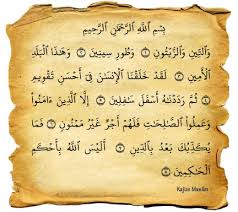 بِسْمِ اللَّهِ الرَّحْمَٰنِ الرَّحِيمِ
وَالتِّينِ وَالزَّيْتُونِ ۝ وَطُورِ سِينِينَ ۝ وَهَٰذَا الْبَلَدِ
الْأَمِينِ ۝ لَقَدْ خَلَقْنَا الْإِنسَانَ فِي أَحْسَنِ تَقْوِيمٍ
۝ ثُمَّ رَدَدْنَاهُ أَسْفَلَ سَافِلِينَ ۝ إِلَّا الَّذِينَ آمَنُوا
وَعَمِلُوا الصَّالِحَاتِ فَلَهُمْ أَجْرٌ غَيْرُ مَمْنُونٍ ۝ فَمَا
يُكَذِّبُكَ بَعْدُ بِالدِّينِ ۝ أَلَيْسَ اللَّهُ بِأَحْكَمِ
الْحَاكِمِينَ ۝
Kajian Muslim